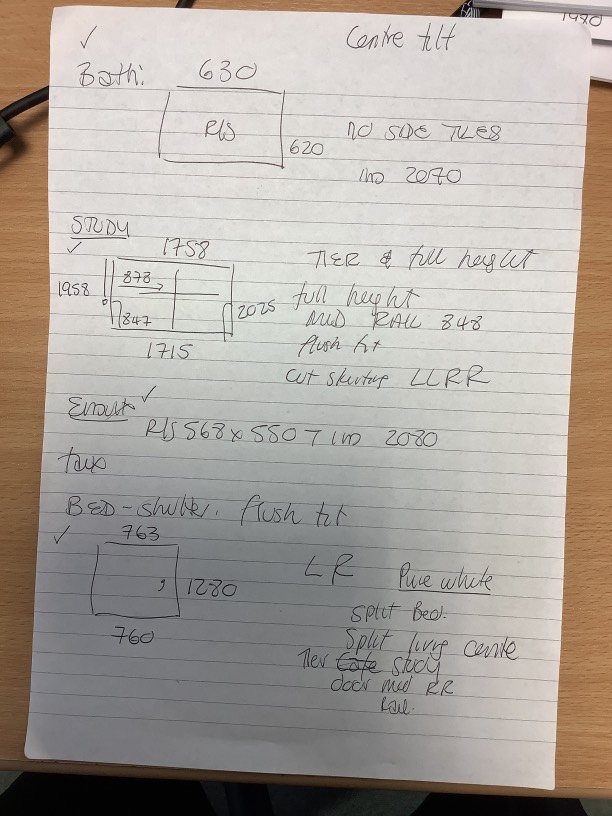 1980
Centre tilt
Bath: 630
R/S
620
NO SIDE TILES
IND 2070
STUDY
1758
TIER & full height
1958
878
full height
847
2025
MID RAIL 848
flush fit
1715
Cut skirting LLRR
Ensuite
R/S 568 x 550 T IND 2080
BED - shutter. flush fit
763
LR
Pure white
1280
Split Bed.
760
Split living centre
Tier study
door mid RR
Rail.